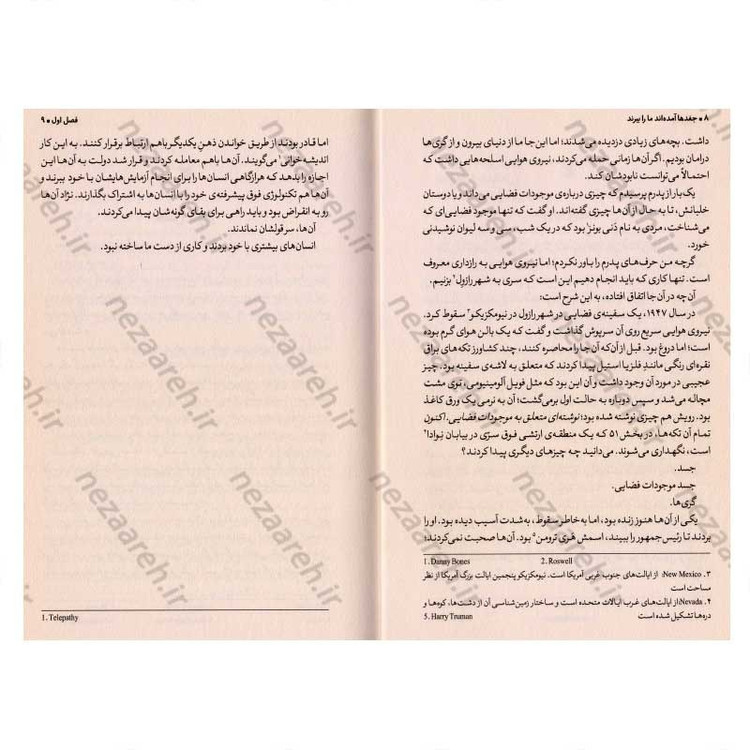 ۸ • جغدها آمده‌اند ما را ببرند
داشت. بچه‌های زیادی دزدیده می‌شدند؛ اما این جا ما از دنیای بیرون و از گری‌ها
درامان بودیم. اگر آن‌ها زمانی حمله می‌کردند، نیروی هوایی اسلحه‌هایی داشت که
احتمالاً می‌توانست نابودشان کند.
یک‌بار از پدرم پرسیدم که چیزی درباره‌ی موجودات فضایی می‌داند و یا دوستان
خلبانش، تا به حال از آن‌ها چیزی گفته‌اند. او گفت که تنها موجود فضایی‌ای که
می‌شناخت، مردی به نام دَنی بونز۱ بود که در یک شب، سی و سه لیوان نوشیدنی
خورد.
گرچه من حرف‌های پدرم را باور نکردم؛ اما نیروی هوایی به رازداری معروف
است. تنها کاری که باید انجام دهیم این است که سری به شهر رازول۲ بزنیم.
آن‌چه در آن‌جا اتفاق افتاده، به این شرح است:
در سال ۱۹۴۷، یک سفینه‌ی فضایی در شهر رازول در نیومکزیکو۳ سقوط کرد.
نیروی هوایی سریع روی آن سرپوش گذاشت و گفت که یک بالن هوای گرم بوده
است؛ اما دروغ بود. قبل از آن‌که آن جا را محاصره کنند، چند کشاورز تکه‌های براق
نقره‌ای رنگی مانند فلز یا استیل پیدا کردند که متعلق به لاشه‌ی سفینه بود. چیز
عجیبی در مورد آن وجود داشت و آن این بود که مثل فویل آلومینیومی، توی مشت
مچاله می‌شد و سپس دوباره به حالت اول برمی‌گشت؛ آن به نرمی یک ورق کاغذ
بود. رویش هم چیزی نوشته شده بود؛ نوشته‌ای متعلق به موجودات فضایی. اکنون
تمام آن تکه‌ها، در بخش ۵۱ که یک منطقه‌ی ارتشی فوق سرّی در بیابان نِوادا۴
است، نگهداری می‌شوند. می‌دانید چه چیزهای دیگری پیدا کردند؟
جسد.
جسد موجودات فضایی.
گری‌ها.
یکی از آن‌ها هنوز زنده بود، اما به خاطر سقوط، به‌شدت آسیب دیده بود. او را
بردند تا رئیس‌جمهور را ببیند، اسمش هَری ترومن۵ بود. آن‌ها صحبت نمی‌کردند؛
1. Danny Bones 2. Roswell
۳. New Mexico: از ایالت‌های جنوب غربی آمریکا است. نیومکزیکو پنجمین ایالت بزرگ آمریکا از نظر
مساحت است
۴. Nevada: از ایالت‌های غرب ایالات متحده است و ساختار زمین‌شناسی آن از دشت‌ها، کوه‌ها و
دره‌ها تشکیل شده است
5. Harry Truman
فصل اول • ۹
اما قادر بودند از طریق خواندن ذهنِ یکدیگر باهم ارتباط برقرار کنند. به این کار
اندیشه‌خوانی۱ می‌گویند. آن‌ها باهم معامله کردند و قرار شد دولت به آن‌ها این
اجازه را بدهد که هرازگاهی انسان‌ها را برای انجام آزمایش‌هایشان با خود ببرند و
آن‌ها هم تکنولوژی فوق پیشرفته‌ی خود را با انسان‌ها به اشتراک بگذارند. نژاد آن‌ها
رو به انقراض بود و باید راهی برای بقای گونه‌شان پیدا می‌کردند.
آن‌ها، سر قولشان نماندند.
انسان‌های بیشتری با خود بردند و کاری از دست ما ساخته نبود.
1. Telepathy
nezaareh.ir
nezaareh.ir
nezaareh.ir
nezaareh.ir
nezaareh.ir
nezaareh.ir
nezaareh.ir
nezaareh.ir